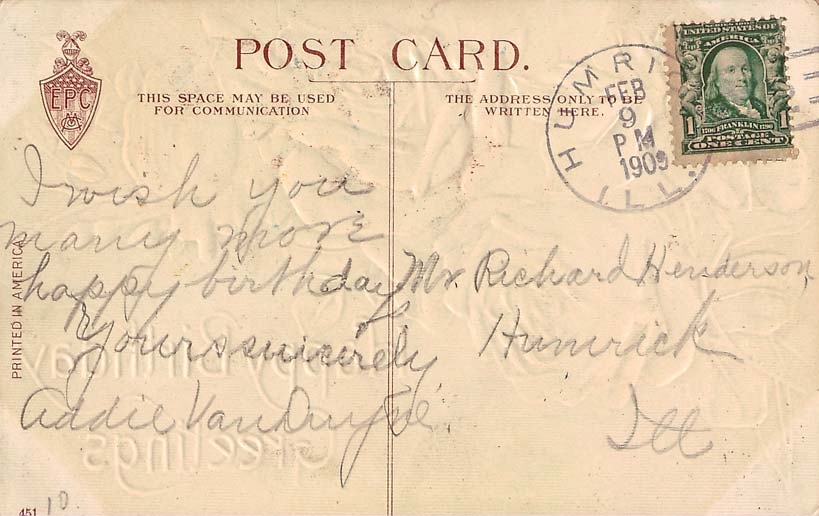 POST CARD.
EPC
THIS SPACE MAY BE USED
FOR COMMUNICATION
THE ADDRESS ONLY TO BE
WRITTEN HERE.
HUMRI
FEB
9
PM
1909
ILL.
UNITED STATES OF
AMERICA
1
1
FRANKLIN
POSTAGE
ONE CENT
I wish you
many more
happy birthdays
Yours sincerely
Addie
Mr. Richard Henderson,
Humrick
Ill
PRINTED IN AMERICA
Happy Birthday
Greetings
451
10